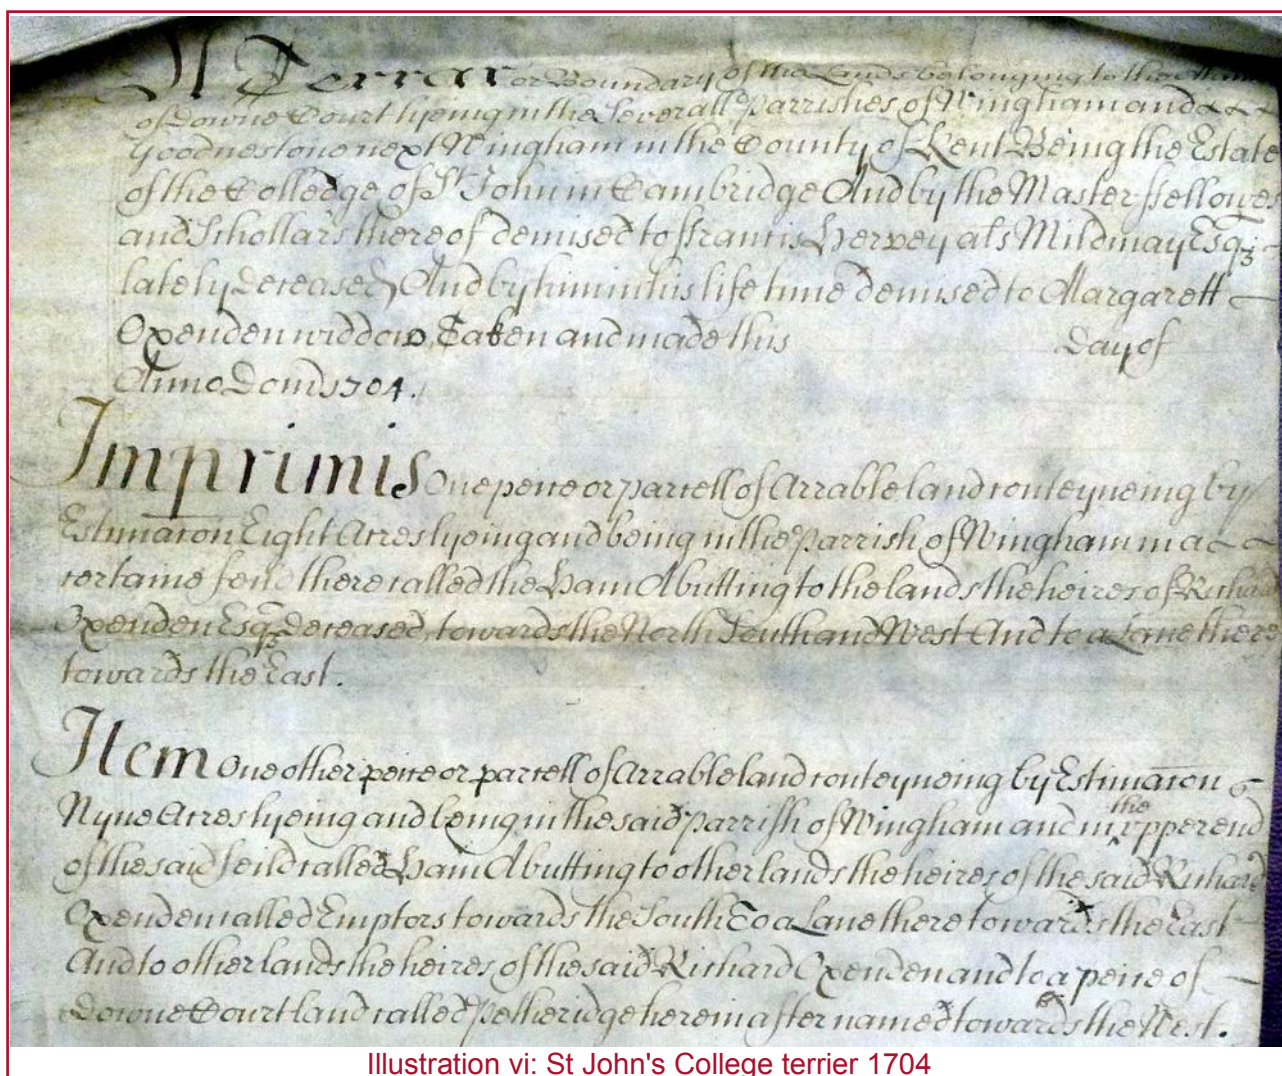 A Terrar or Boundary of the Lands belonging to the
of Downe Court lyeing in the Severall Parrishes of Wingham and
Goodnestone next Wingham in the County of Kent Being the Estate
of the Colledge of St John in Cambridge And by the Master ffellowes
and Schollars thereof demised to ffrancis Hervey als Mildmay Esqr
lately deceased, And by him in his life time demised to Margarett
Oxenden widdow, Taken and made this Day of
Anno Dom 1704.
Imprimis One peice or parcell of Arrable land conteyneing by
Estimacon Eight Acres lyeing and being in the Parrish of Wingham in a
certaine feild there called the Ham Abutting to the lands the heires of Richard
Oxenden Esqr deceased, towards the North South and West And to a Lane there
towards the East.
Item One other peice or parcell of Arrable land conteyneing by Estimacon
Nyne Acres lyeing and being in the said Parrish of Wingham and in the upper end
of the said feild called Ham Abutting to other lands the heires of the said Richard
Oxenden called Emptors towards the South To a Lane there towards the East
And to other lands the heires of the said Richard Oxenden and to a peice of
Downe Court land called Petheridge herein after named towards the West.
Illustration vi: St John's College terrier 1704